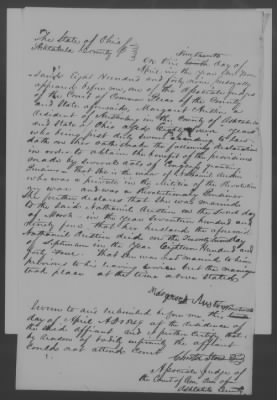 The State of Ohio
Ashtabula County
On this day of
April in the year One Thou
sand Eight Hundred and forty nine personally
appeared before me, one of the Associate Judges
of the Court of Common Pleas of the County
and State aforesaid, Margaret Austin, a
resident of in the County of Ashtabula
and State of Ohio aged years
who being first duly sworn according to law
doth on her oath make the following declaration
in order to obtain the benefit of the provisions
made by acts of Congress granting
Pensions, That she is the widow of Nathaniel Austin
who was a private in the Militia of the Revolution
ary war and was a Revolutionary Pensioner
She further declares that she was married
to the said Nathaniel Austin on the day
of March in the year Seventeen hundred and
Ninety nine, that her husband the aforesaid
Nathaniel Austin died on the day
of September in the year Eighteen Hundred and
forty four. That she was not married to him
previous to his leaving service but the marriage
took place at the time above stated
Margaret Austin
Sworn to and subscribed before me this
day of April A.D. 1849 at the residence of
the said affiant and I further certify that
by reason of bodily infirmity the affiant
could not attend Court
Associate Judge of
the Court of Com
Ashtabula County